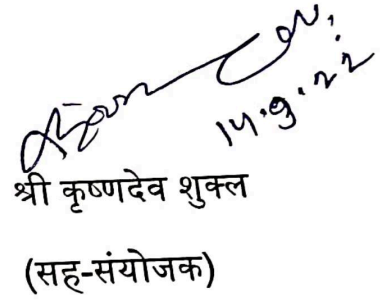 14.9.22
श्री कृष्णदेव शुक्ल
(सह-संयोजक)